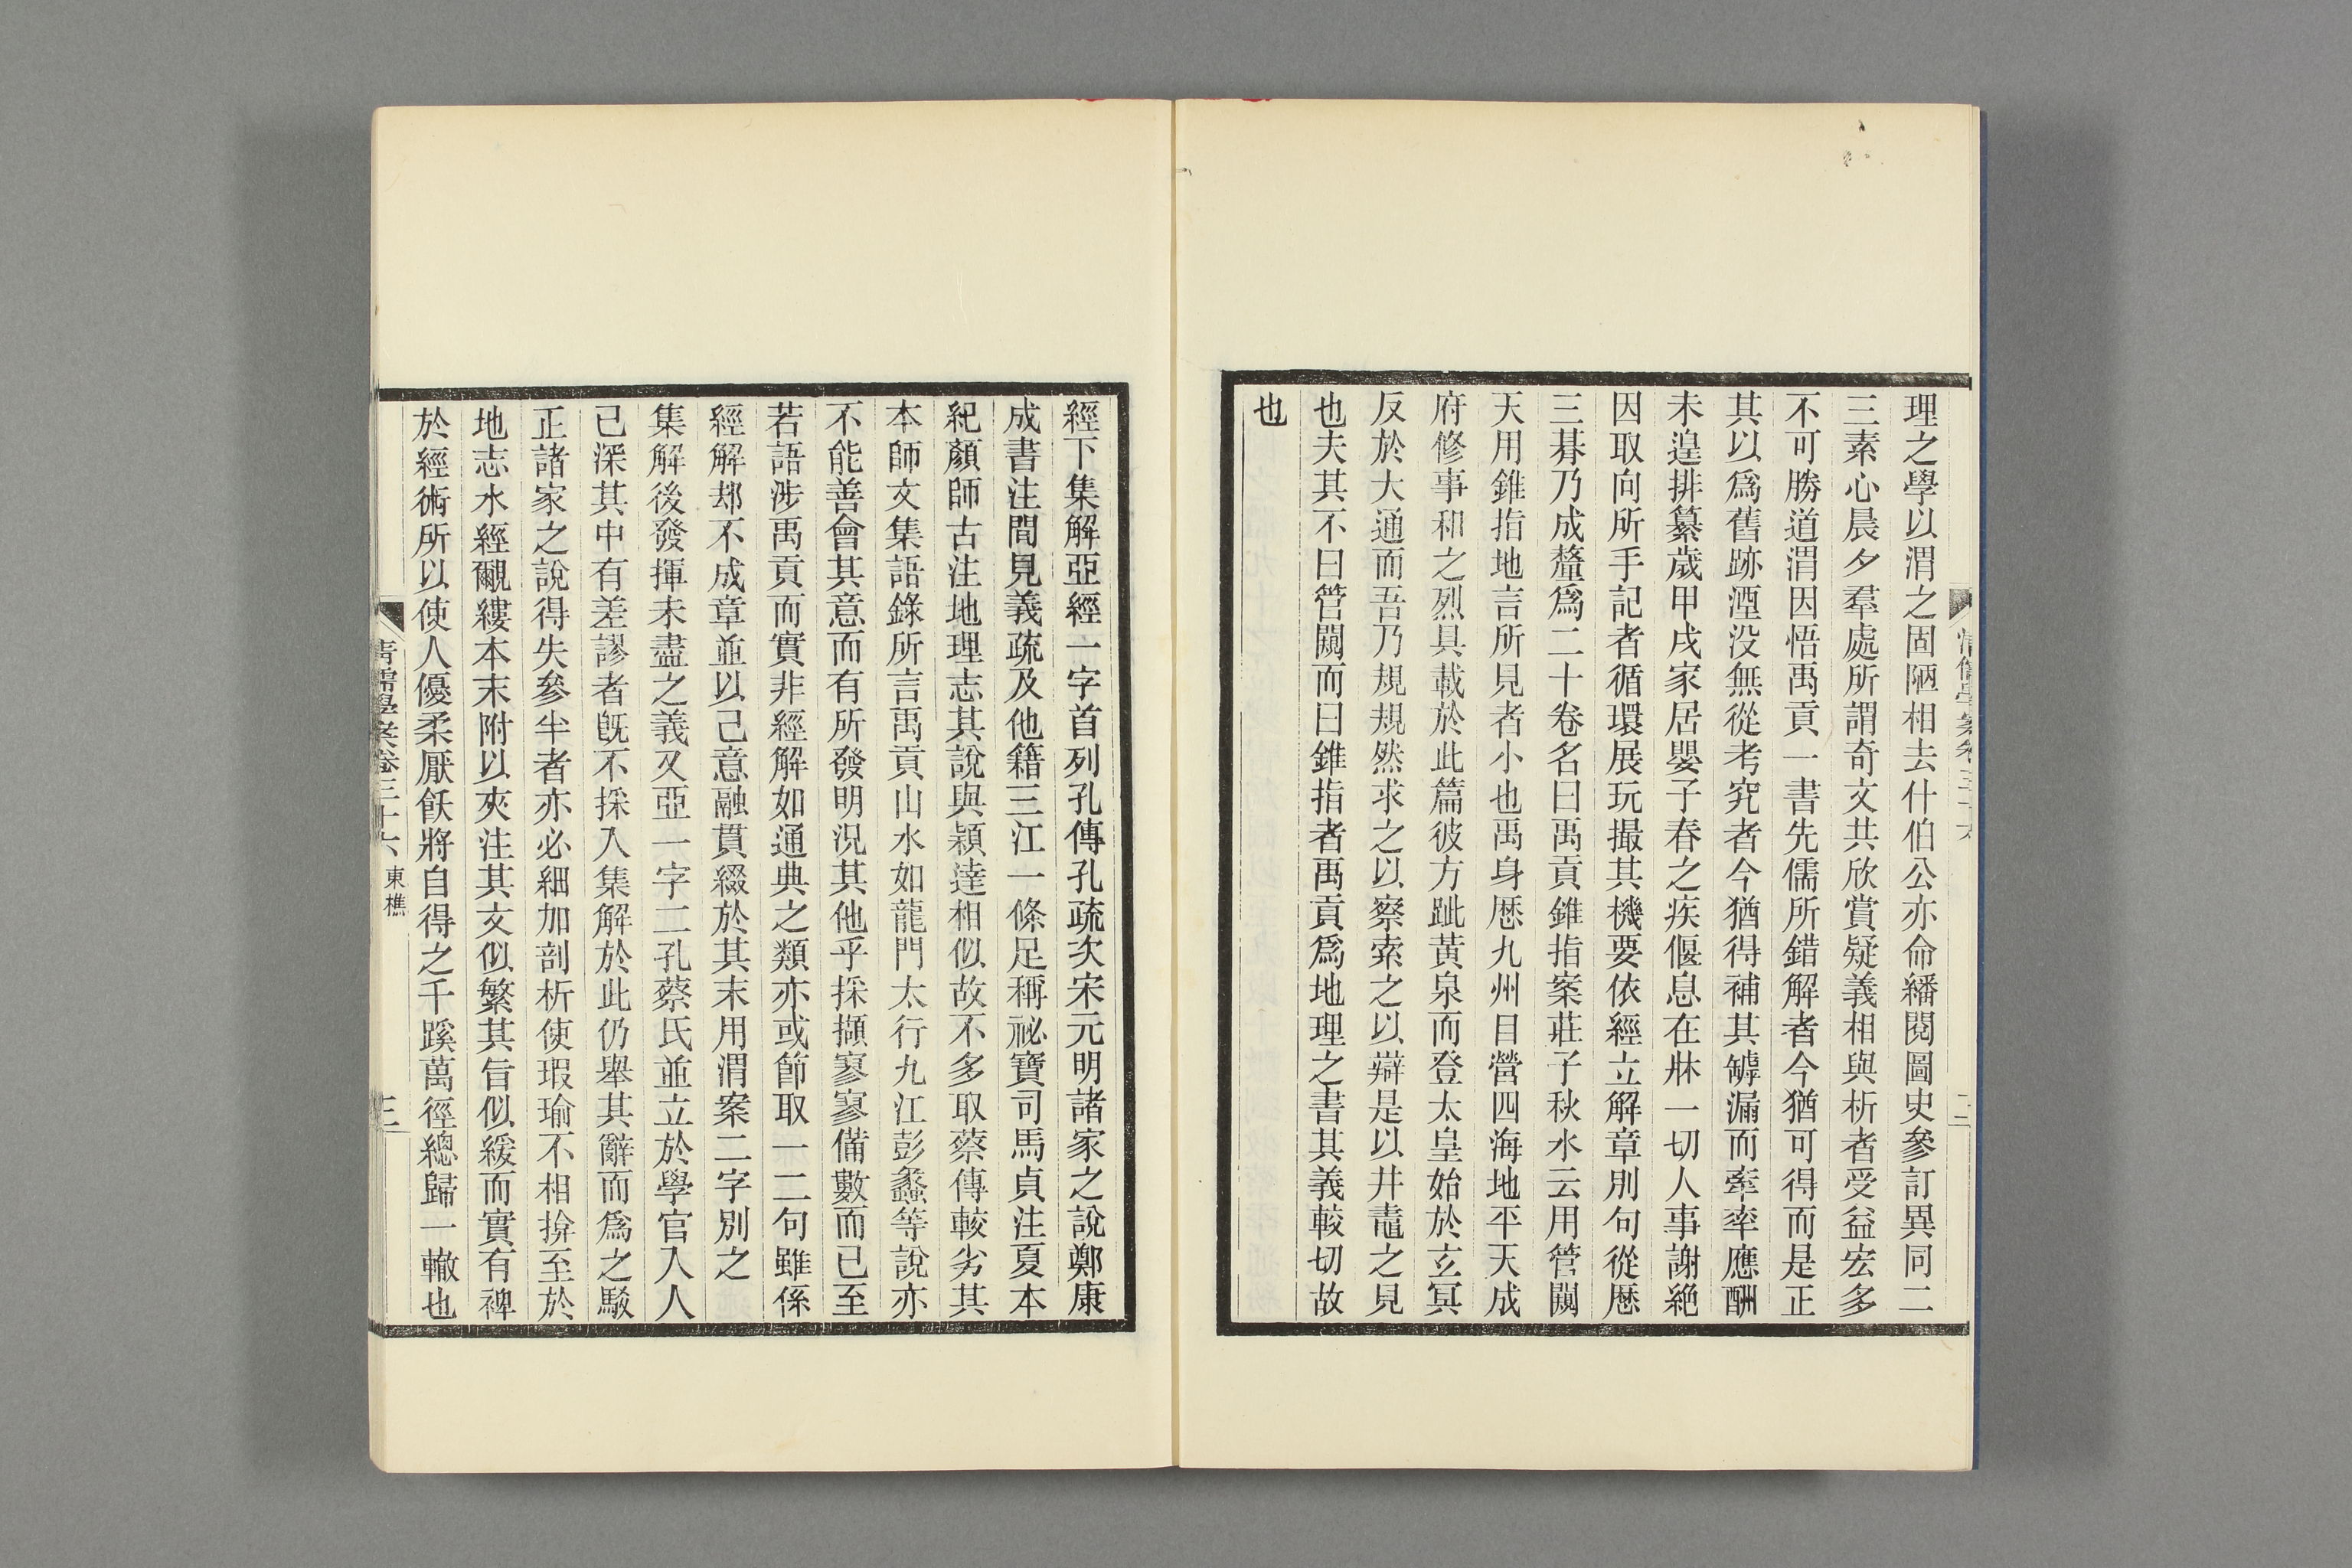 理之學以渭之固陋相去什伯公亦命繙閱圖史參訂異同二
三素心晨夕羣處所謂奇文共欣賞疑義相與析者受益宏多
不可勝道渭因悟禹貢一書先儒所錯解者今猶可得而是正
其以爲舊跡湮没無從考究者今猶得補其罅漏而牽率應酬
未遑排纂歲甲戌家居嬰子春之疾偃息在牀一切人事謝絶
因取向所手記者循環展玩撮其機要依經立解章別句從歷
三朞乃成釐爲二十卷名曰禹貢錐指案莊子秋水云用管闚
天用錐指地言所見者小也禹身歷九州目營四海地平天成
府修事和之烈具載於此篇彼方跐黃泉而登太皇始於玄冥
反於大通而吾乃規規然求之以察索之以辯是以井鼃之見
也夫其不曰管闚而曰錐指者禹貢爲地理之書其義較切故
也
清儒學案卷三十六
二
經下集解亞經一字首列孔傳孔疏次宋元明諸家之說鄭康
成書注間見義疏及他籍三江一條足稱祕寶司馬貞注夏本
紀顏師古注地理志其說與穎達相似故不多取蔡傳較劣其
本師文集語錄所言禹貢山水如龍門太行九江彭蠡等說亦
不能善會其意而有所發明況其他乎採擷寥寥備數而已至
若語涉禹貢而實非經解如通典之類亦或節取一二句雖係
經解却不成章並以己意融貫綴於其末用渭案二字別之
集解後發揮未盡之義又亞一字二孔蔡氏並立於學官人人
已深其中有差謬者旣不採入集解於此仍舉其辭而爲之駁
正諸家之說得失參半者亦必細加剖析使瑕瑜不相揜至於
地志水經覼縷本末附以夾注其文似繁其旨似緩而實有裨
於經術所以使人優柔厭飫將自得之千蹊萬徑總歸一轍也
清儒學案卷三十六 東樵
三